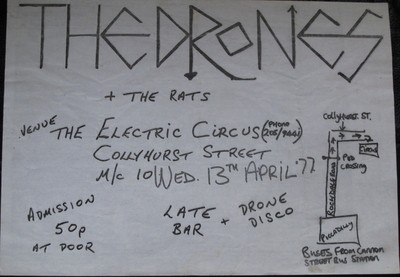 THE DRONES
+ THE RATS
VENUE THE ELECTRIC CIRCUS (PHONO
COLLYHURST STREET
M/C 10 WED. 13TH APRIL '77
ADMISSION
50p
AT DOOR
LATE
BAR
+ DRONE
DISCO
COLLYHURST ST.
PED
CROSSING
ROCHDALE ROAD
PICCADILLY
BUSES FROM CANNON
STREET BUS STATION